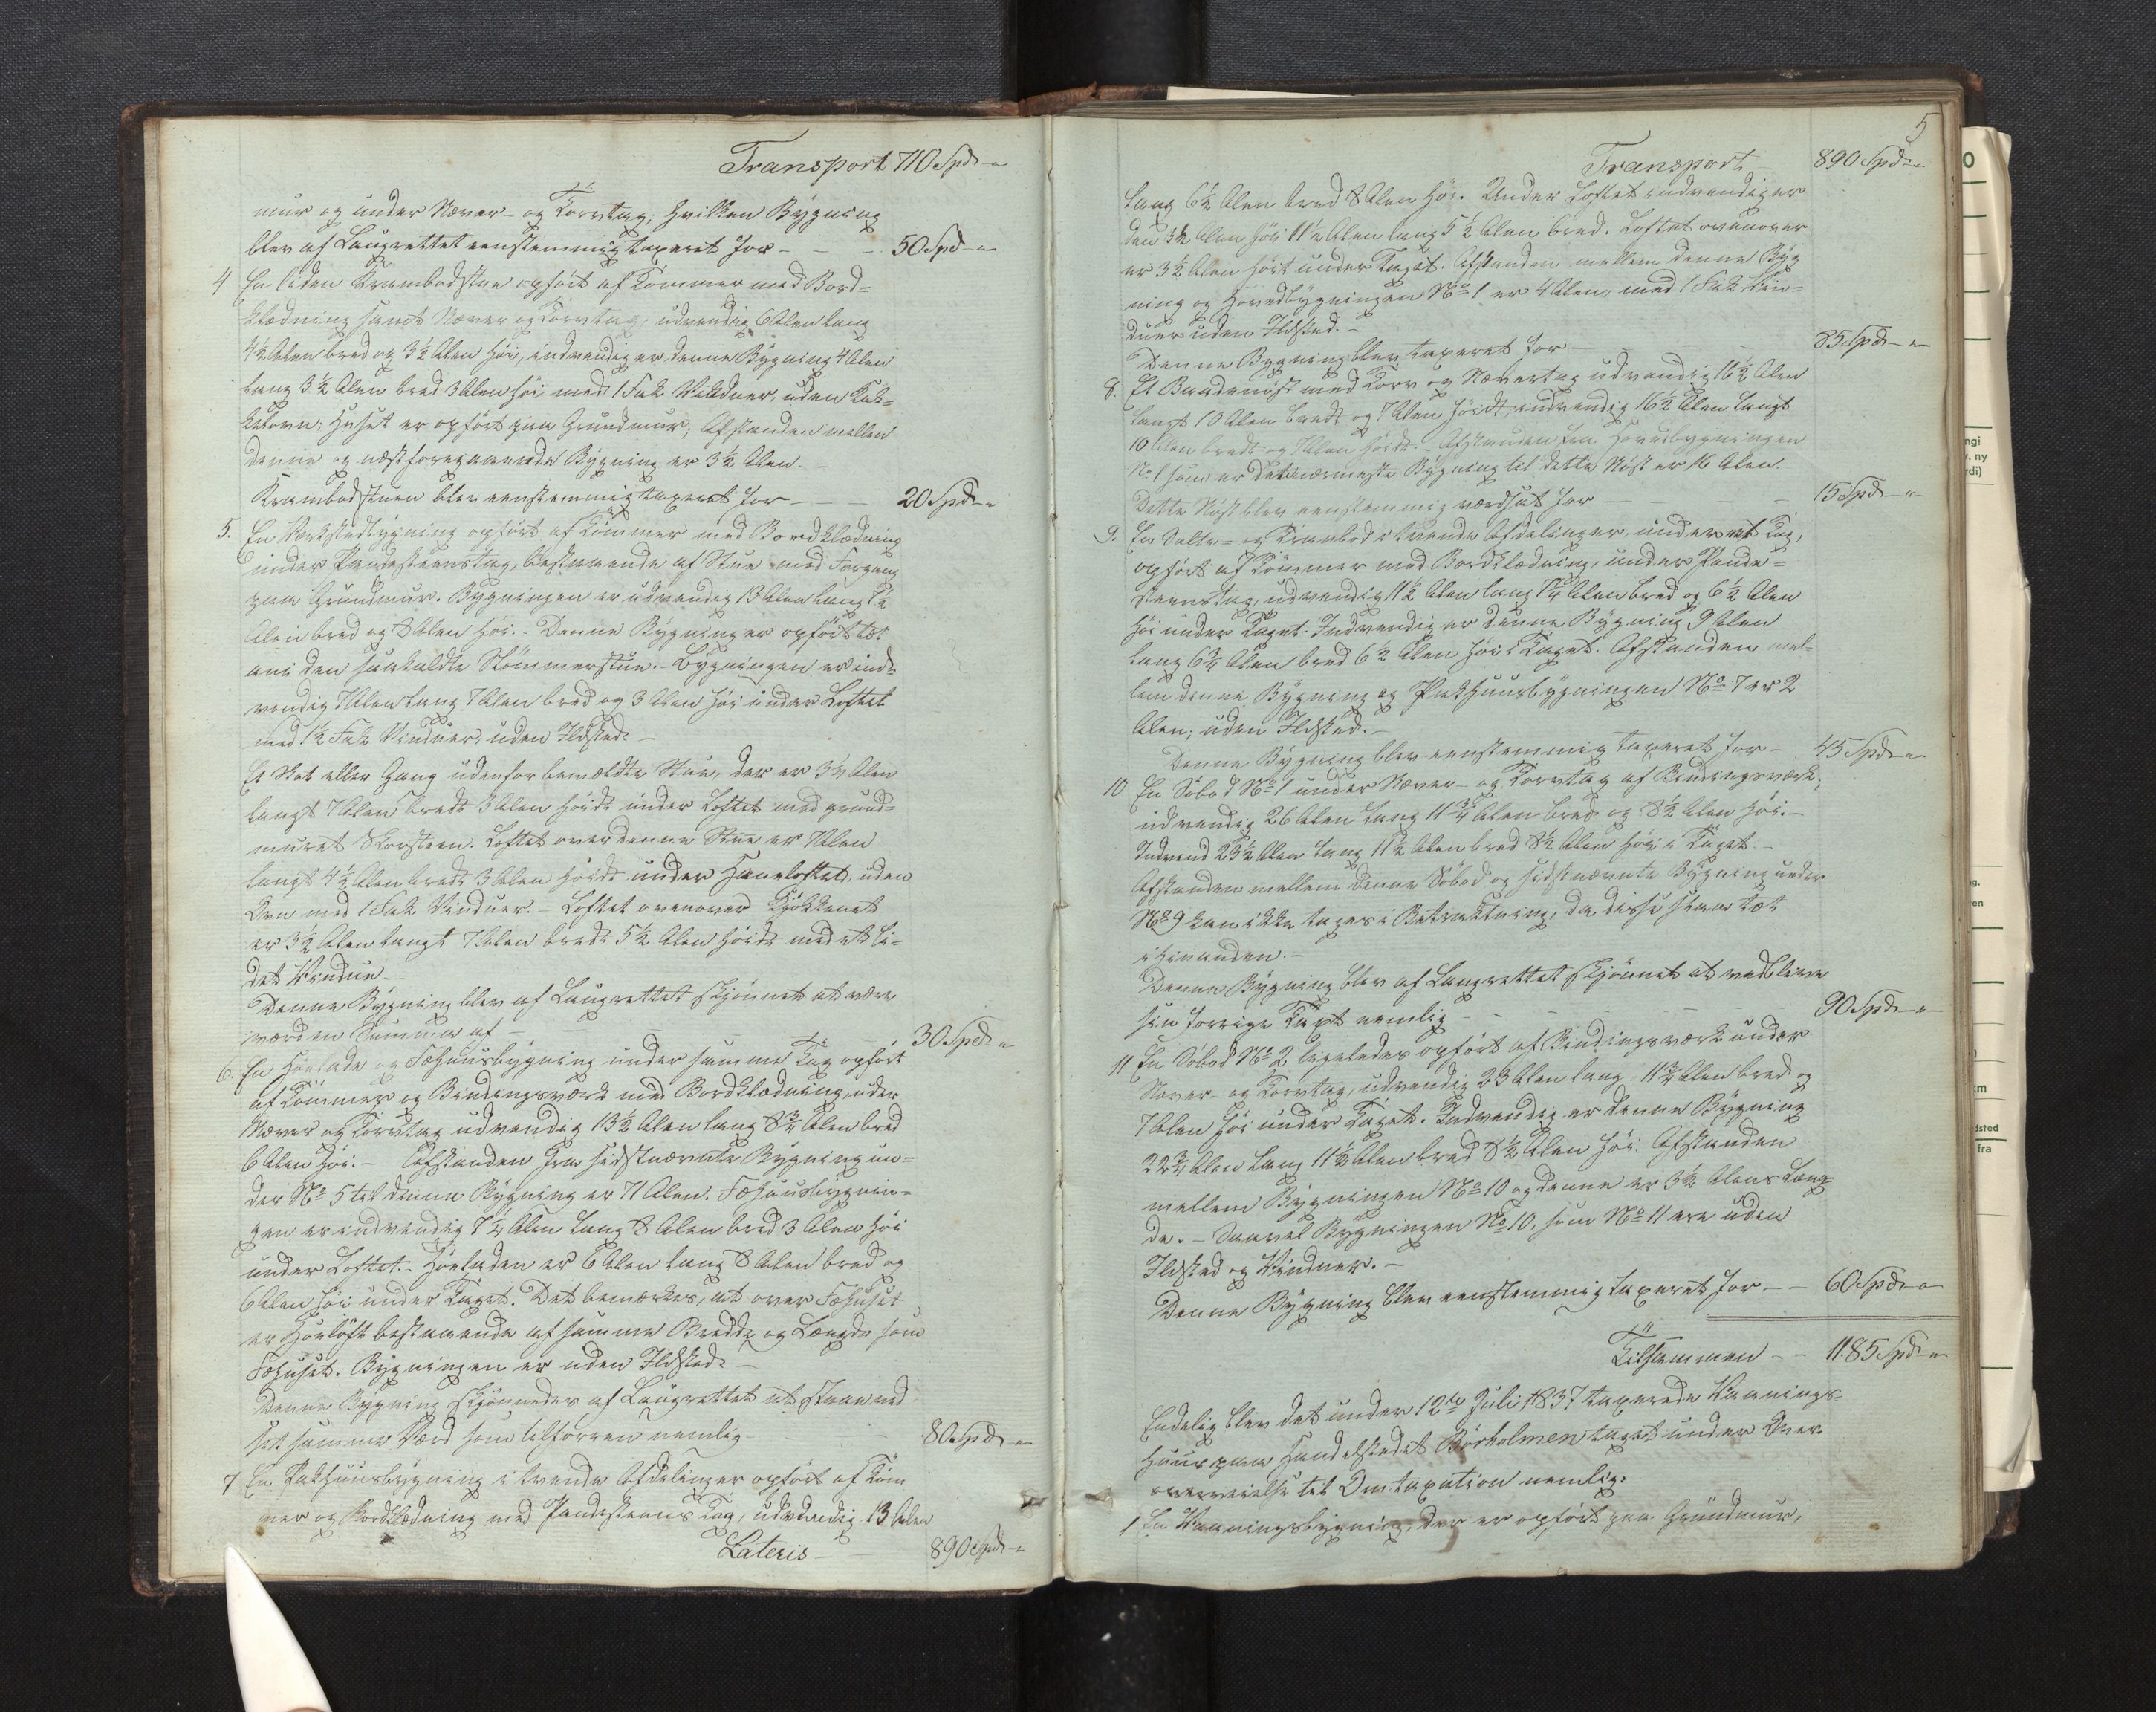 Transport 710 Spd -"-
mur og under Næver- og Torvtag, hvilken Bygning
blev af Laugrettet eenstemmig taxeret for - - - 50 Spd -"-
4 En liden Krambodstue opført af Tømmer med Bord-
klædning samt Næver og Torvtag, udvendig 6 Alen lang
4½ Alen bred og 3½ Alen høi, indvendig er denne Bygning 4 Alen
lang 3½ Alen bred 3 Alen høi med 1 Fak Vinduer, uden Kak-
kelovn; Huset er opført paa Grundmur; Afstanden mellem
denne og næstforegaaende Bygning er 3½ Alen. -
Krambodstuen blev eenstemmig taxeret for - - - 20 Spd -"-
5. En Værkstedbygning opført af Tømmer med Bordklædning
under Pandesteenstag, bestaaende af Stue med Forgang
paa Grundmur. Bygningen er udvendig 13 Alen lang 7½
Alen bred og 8 Alen høi. - Denne Bygning er opført tæt
ani den saakaldte Stømmerstue. - Bygningen er ind-
vendig 7 Alen lang 7 Alen bred og 3 Alen høi under Loftet
med 1½ Fak Vinduer, uden Ildsted. -
Et Skot eller Gang udenfor bemældte Stue, der er 3½ Alen
langt 7 Alen bredt 3 Alen høidt under Loftet med grund-
muret Skorsteen. Loftet over denne Stue er 7 Alen
langt 4½ Alen bredt 3 Alen høidt under Haneloftet, uden
Ovn med 1 Fak Vinduer. - Loftet ovenover Kjøkkenet
er 3½ Alen langt 7 Alen bredt 5½ Alen høidt med et li-
det Vindue. -
Denne Bygning blev af Laugrettet skjønnet at være
værd en Summa af - - - 30 Spd -"-
6. En Høelade og Fæhuusbygning under samme Tag opført
af Tømmer og Bindingsværk med Bordklædning under
Næver og Torvtag udvendig 13½ Alen lang 8¾ Alen bred
6 Alen høi. - Afstanden fra sidstnævnte Bygning un-
der No 5 til denne Bygning er 71 Alen. Fæhuusbygnin-
gen er indvendig 7¼ Alen lang 8 Alen bred 3 Alen høi
under Loftet. Høeladen er 6 Alen lang 8 Alen bred og
6 Alen høi under Taget. Det bemærkes, at over Fæhuset
er Høeloft bestaaende af samme Bredde og Længde som
Fæhuset. Bygningen er uden Ildsted. -
Denne Bygning skjønnedes af Laugrettet at staae ved
sit samme Værd som tilforren nemlig - - 80 Spd -"-
7 En Pakhuusbygning i tvende Afdelinger opført af Tøm
mer og Bordklædning med Pandesteens Tag, udvendig 13 Alen
Lateris - 890 Spd -"-
5
Transport 890 Spd -"-
lang 6½ Alen bred 8 Alen høi. Under Loftet indvendig er
den 3½ Alen høi 11½ Alen lang 5½ Alen bred. Loftet ovenover
er 3½ Alen høit under Taget. Afstanden mellem denne Byg
ning og Hovedbygningen No 1 er 4 Alen, med 1 Fak Vin-
duer uden Ildsted. -
Denne Bygning blev taxeret for - - - 85 Spd -"-
8. Et Baadenøst med Torv og Nævertag udvendig 16½ Alen
langt 10 Alen bredt og 7 Alen høidt, indvendig 16½ Alen langt
10 Alen bredt og 7 Alen høidt. - Afstanden fra Hovedbygningen
No 1 som er det nærmeste Bygning til dette Nøst er 16 Alen.
Dette Nøst blev eenstemmig værdsat for - - 15 Spd -"-
9. En Salte- og Krambod i tvende Afdelinger, under et Tag,
opført af Tømmer med Bordklædning, under Pande-
steenstag, udvendig 11½ Alen lang 7¼ Alen bred og 6½ Alen
høi under Taget. Indvendig er denne Bygning 9 Alen
lang 6¾ Alen bred 6½ Alen høi i Taget. Afstanden mel-
lem denne Bygning og Pakhuusbygningen No 7 er 2
Alen; uden Ildsted. -
Denne Bygning blev eenstemmig taxeret for - 45 Spd -"-
10 En Søbod No 1 under Næver- og Torvtag af Bindingsværk,
udvendig 26 Alen lang 11¾ Alen bred og 8½ Alen høi. -
Indvend 23½ Alen lang 11½ Alen bred 8½ Alen høi i Taget. -
Afstanden mellem denne Søbod og sidstnævnte Bygning under
No 9 kan ikke tages i Betraktning, da disse staae tæt
i hinanden. -
Denne Bygning blev af Laugrettet skjønnet at vedblive
sin forrige Taxt nemlig - - - 90 Spd -"-
11 En Søbod No 2 ligeledes opført af Bindingsværk under
Næver- og Torvtag, udvendig 23 Alen lang 11¾ Alen bred og
7 Alen høi under Taget. Indvendig er denne Bygning
22¾ Alen lang 11½ Alen bred 8½ Alen høi. Afstanden
mellem Bygningen No 10 og denne er 3½ Alens Læng
de. - Saavel Bygningen No 10, som No 11 ere uden
Ildsted og Vinduer. -
Denne Bygning blev eenstemmig taxeret for - - 60 Spd -"-
Tilsammen - - 1185 Spd -"-
Endelig blev det under 12te Juli 1837 taxerede Vaanings-
huus paa Handelstedet Børholmen taget under Over
overveielse til Omtaxation nemlig:
1 En Vaaningsbygning, der er opført paa Grundmur,